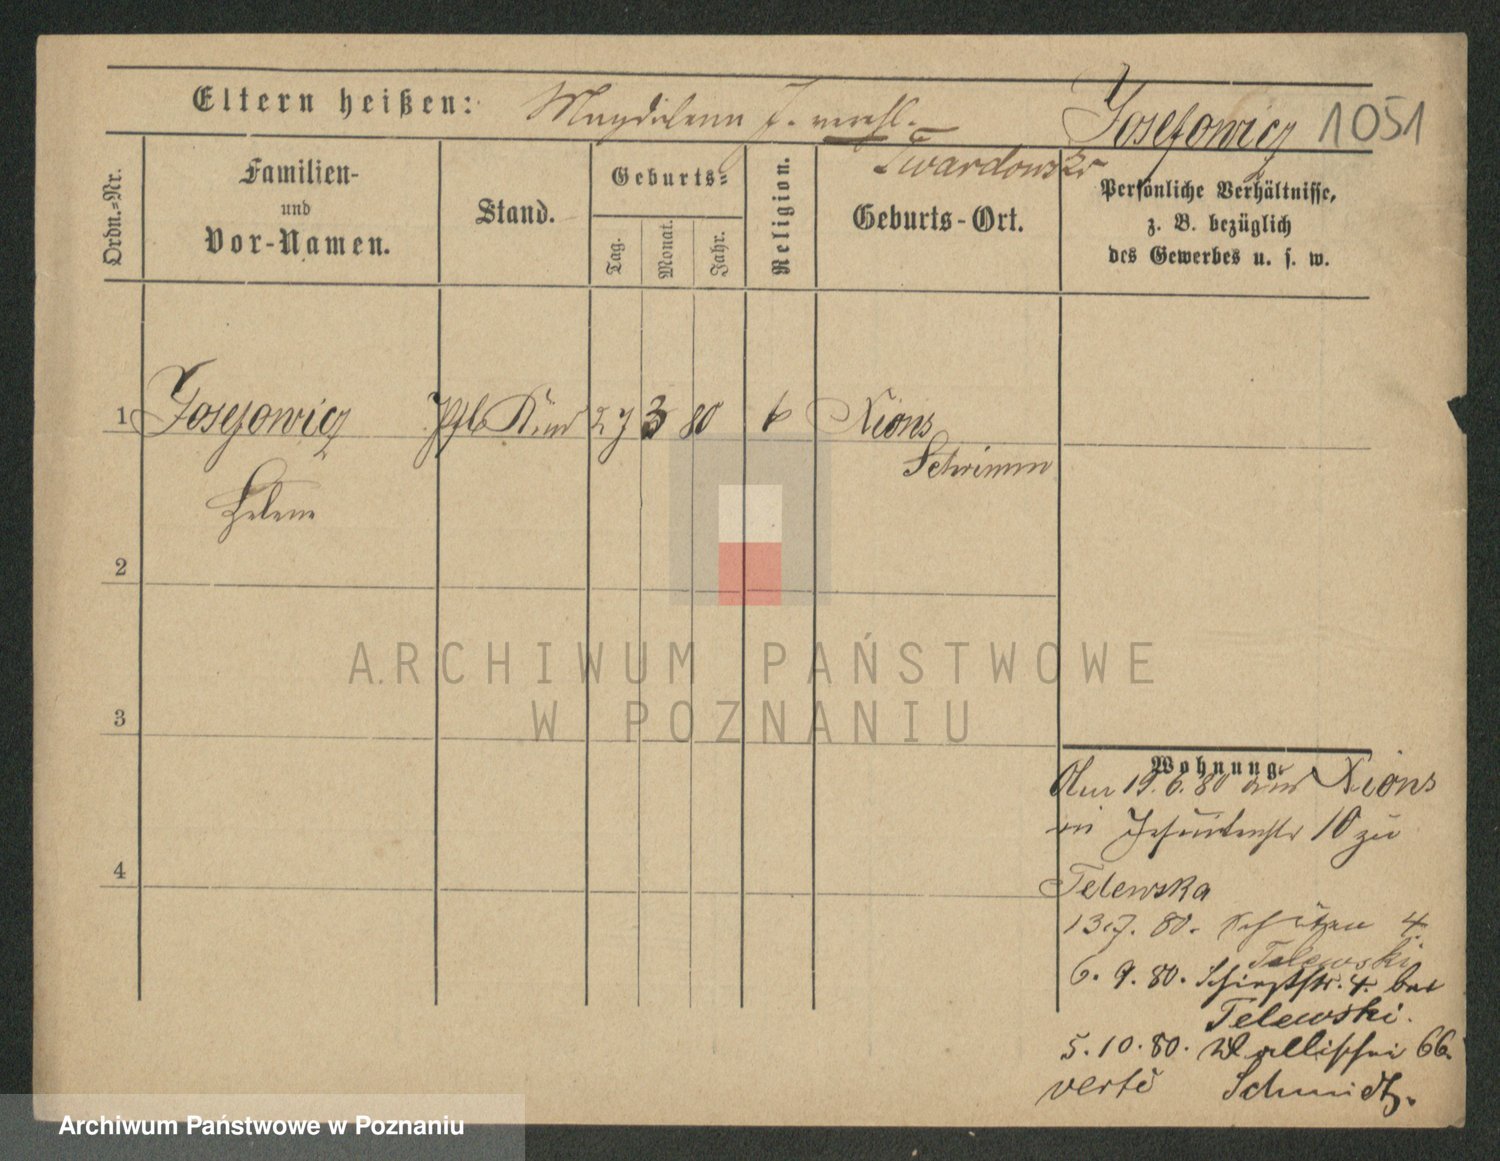 Eltern heißen: Magdalena J. verehl. Josefowicz 1051
Twardowska
Ordn.=Nr.
Familien-
und
Vor-Namen.
Stand.
Geburts=
Tag.
Monat.
Jahr.
Religion.
Geburts-Ort.
Persönliche Verhältnisse,
z. B. bezüglich
des Gewerbes u. s. w.
1 Josefowicz Pfl Kind 27 3 80 k Xions
Schrimm
Helene
2
3
4
Wohnung.
Am 19.6.80 aus Xions
in Jesuitenstr 10 zu
Telewska
13.7.80. Schützen 4.
Telewski
6.9.80. Schießstr. 4. bei
Telewski.
5.10.80. Wallischei 66.
verte Schmidt.
ARCHIWUM PAŃSTWOWE
W POZNANIU
Archiwum Państwowe w Poznaniu